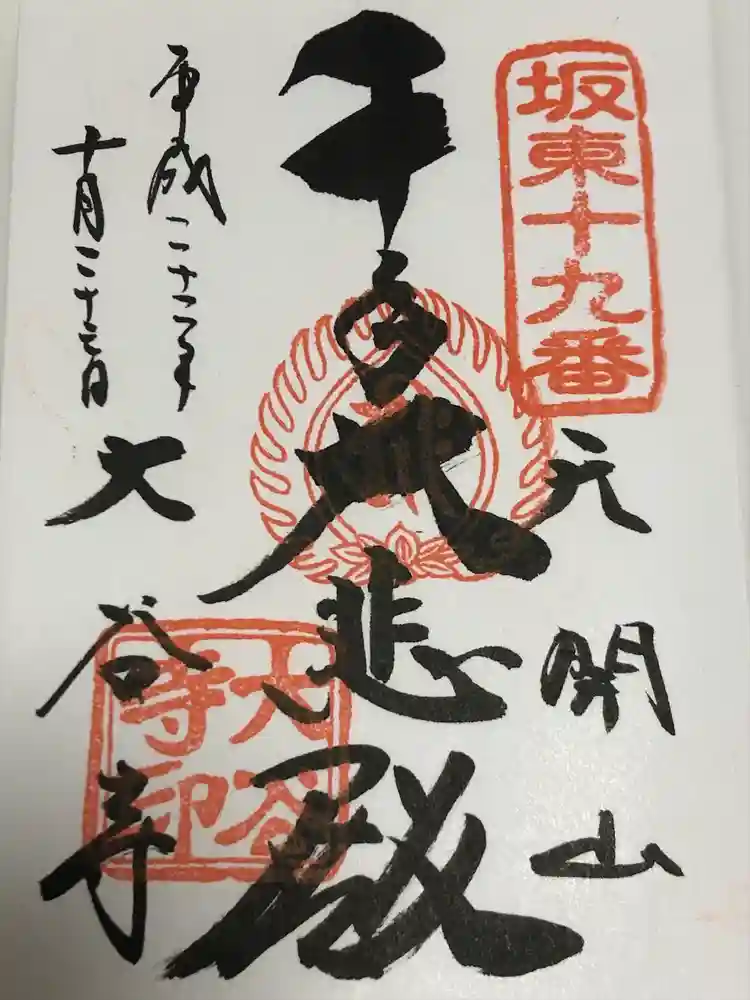 坂東十九番
元開山
大悲殿
平成二十二年
十月二十三日
大谷寺
大谷寺印